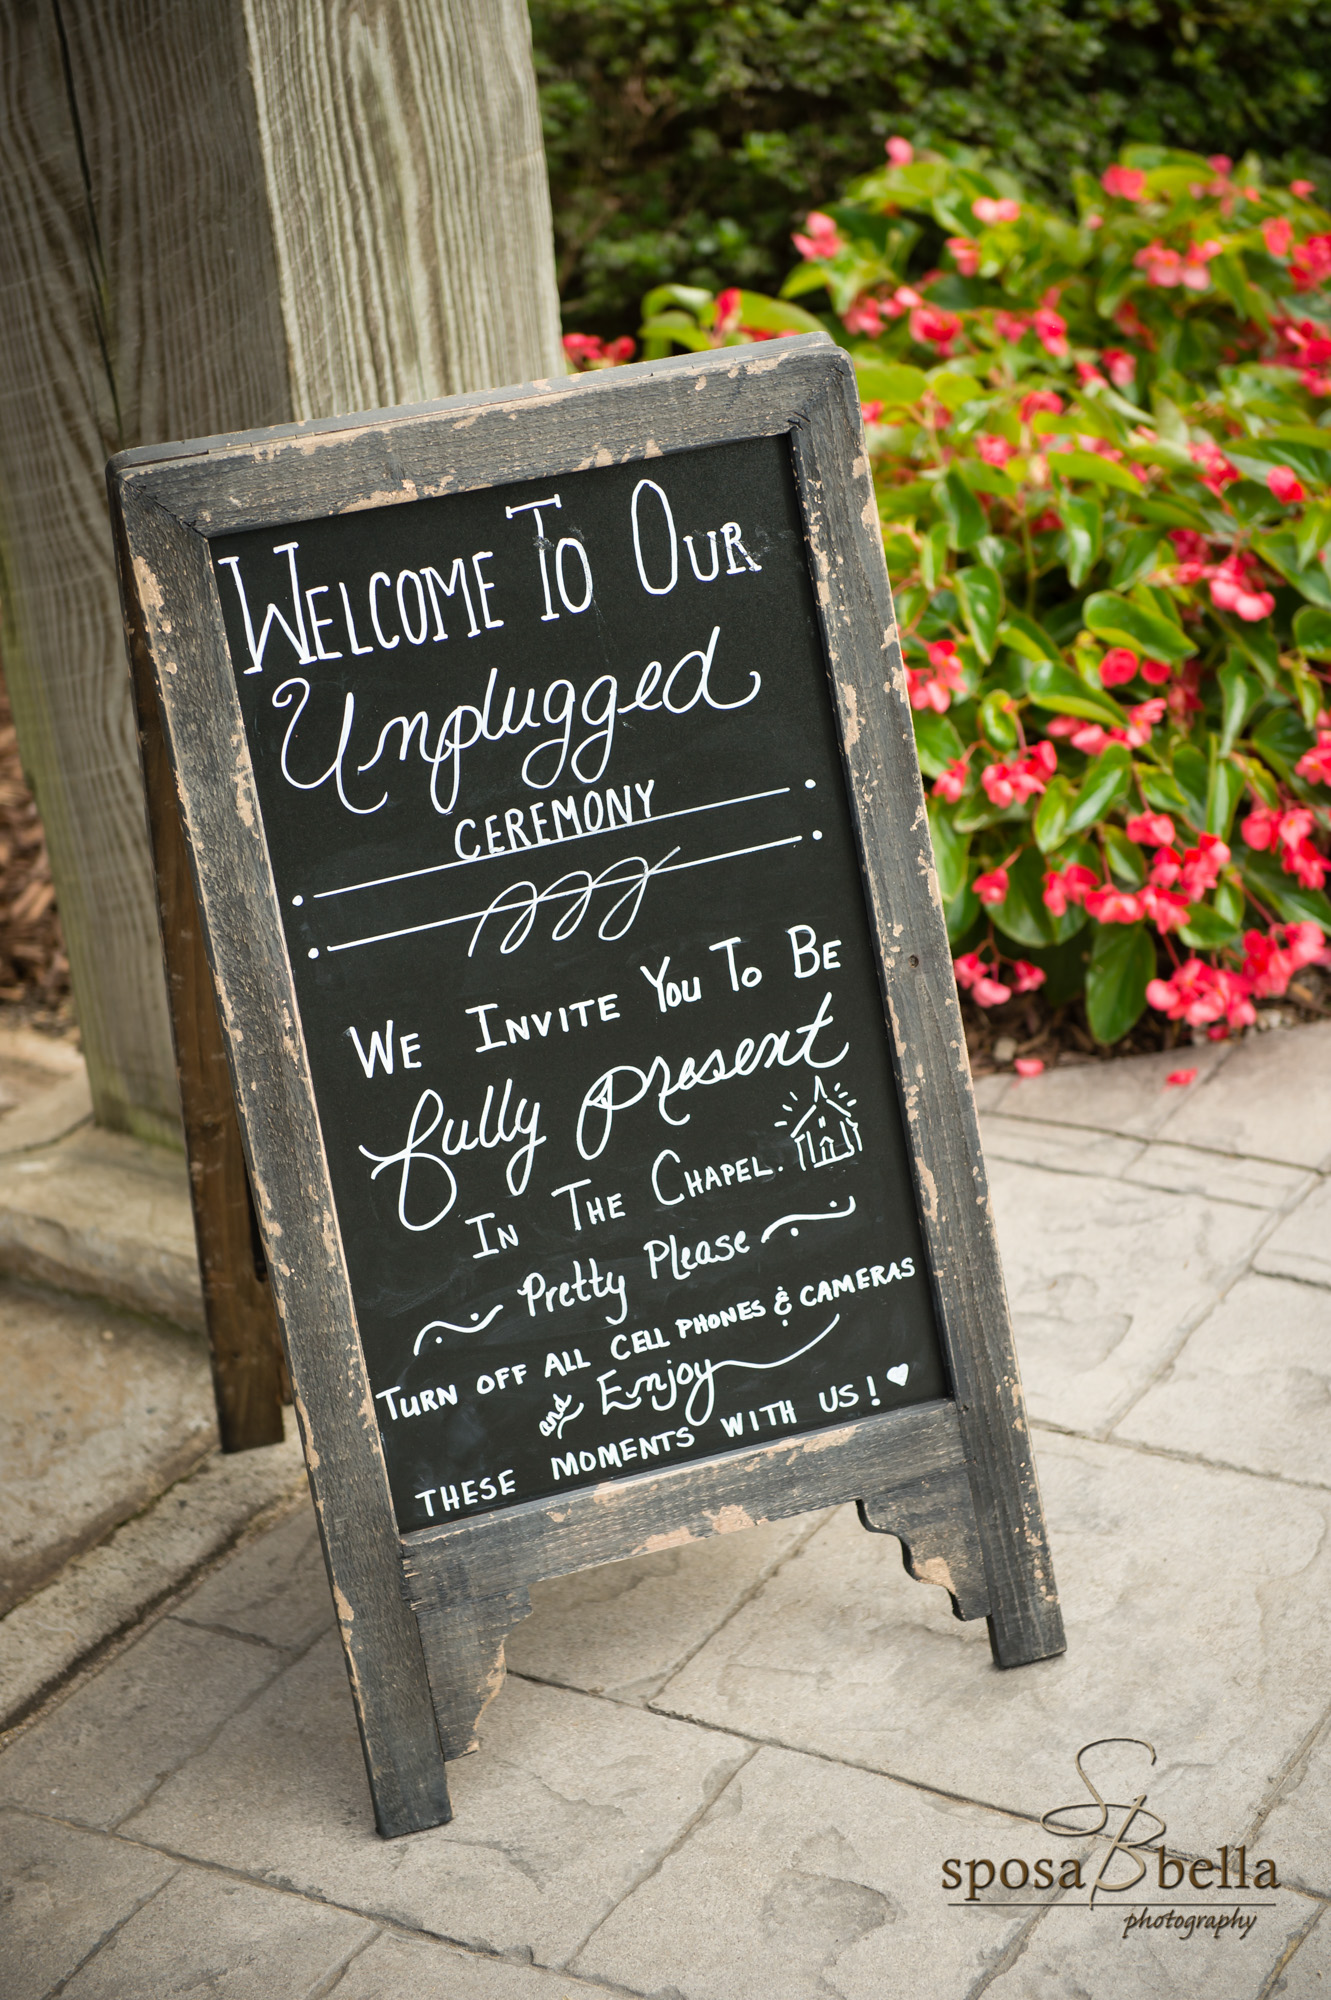 WELCOME TO OUR
Unplugged
CEREMONY
WE INVITE YOU TO BE
fully present
IN THE CHAPEL.
Pretty Please
TURN OFF ALL CELL PHONES & CAMERAS
and Enjoy
THESE MOMENTS WITH US!
SB
sposa bella
photography